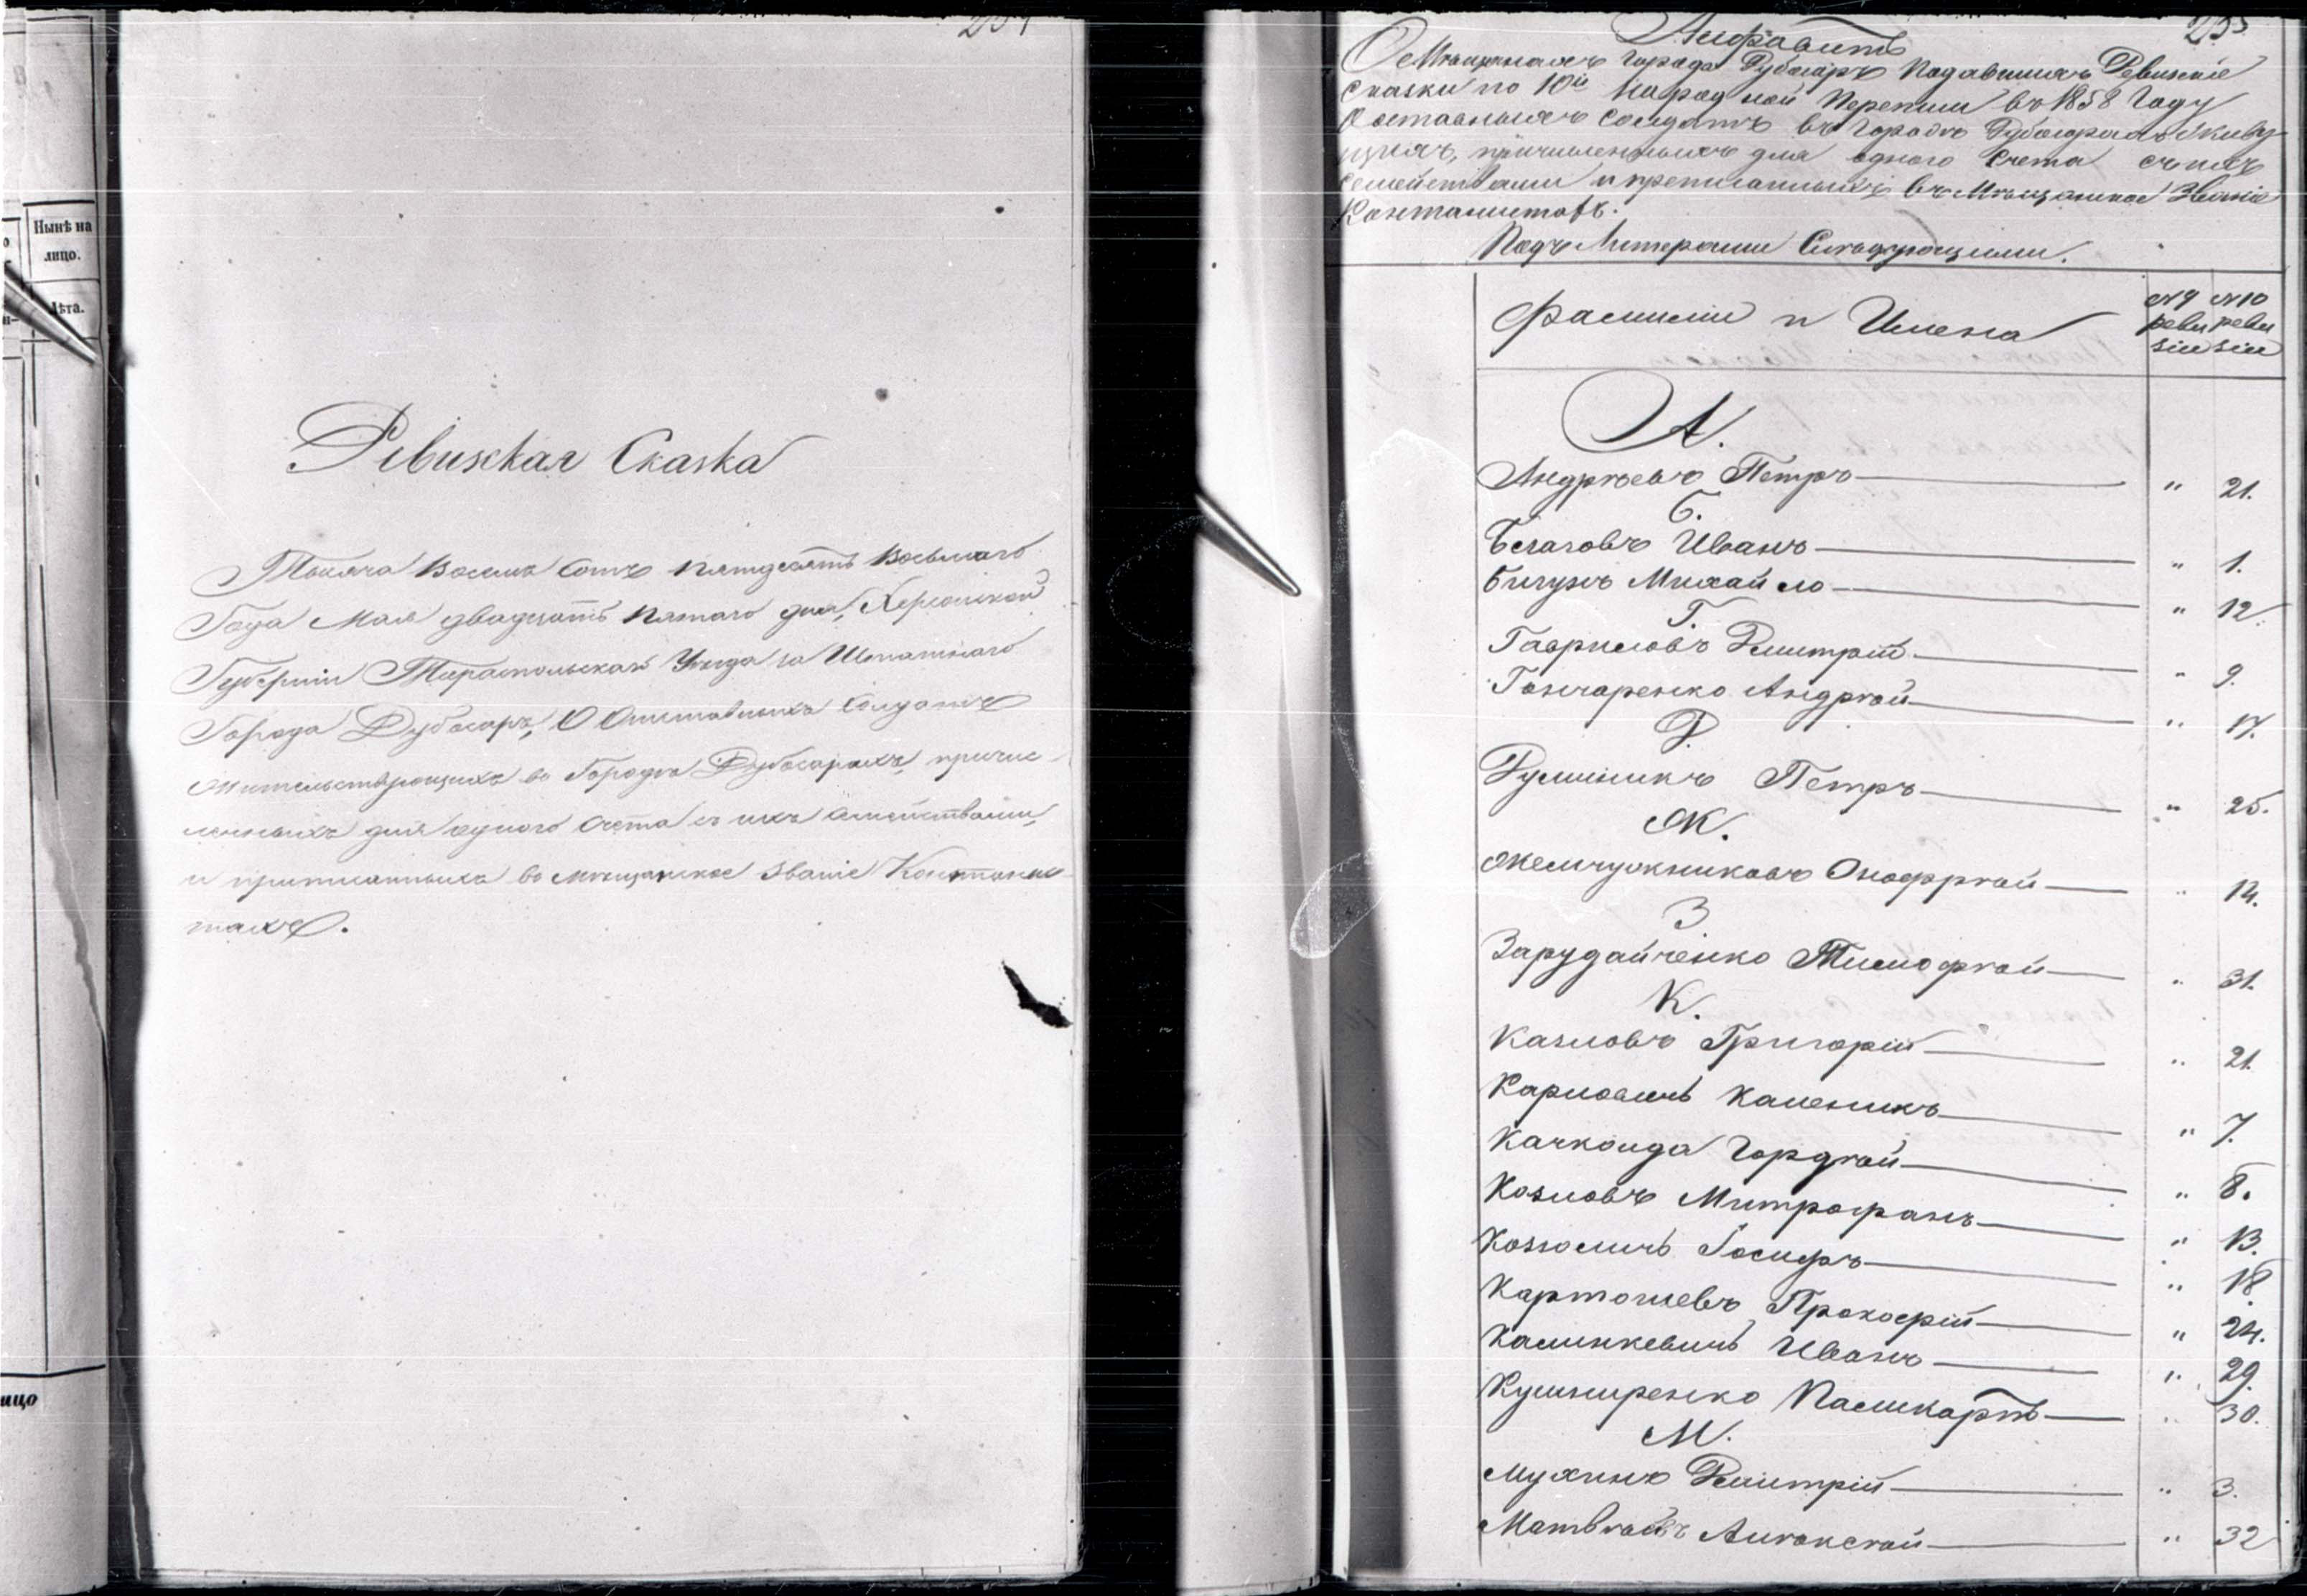 Нынѣ на
лицо.
Лѣта.
лицо
Ревизская Сказка
Тысяча Восемь Сотъ пятдесятъ Восьмаго
Года Мая двадцать пятаго дня, Херсонской
Губерніи Тираспольскаго Уезда За Штатнаго
Города Дубосаръ, О Отставныхъ Солдатъ
жительствующихъ во Городѣ Дубосарахъ, причис-
ленныхъ для одного Счета съ ихъ Семействами,
и приписанныхъ во мѣщанское Званіе Контонис-
тахъ.
255
Алфавитъ
О Мѣщанахъ Города Дубосаръ Подавшихъ Ревизскіе
Сказки по 10й Народной Переписи въ 1858 Году
О отставныхъ Солдатъ въ Городѣ Дубосарахъ живу-
щихъ, причисленныхъ для одного Счета съ ихъ
Семействами и приписанныхъ въ Мѣщанское Званіе
Контонистовъ.
Подъ Литерами Слѣдующими.
Фамиліи и Имена
№ 9 № 10
реви реви
зіи зіи
А.
Андрѣевъ Петръ " 21.
Б.
Иванъ " 1.
Бигунъ Михайло " 12.
Г.
Гавриловъ Дмитрій " 9.
Гончаренко Андрѣй " 17.
Д.
Думиникъ Петръ " 25.
Ж.
Жемчужниковъ Онофрѣй " 14.
З
Зарудайченко Тимофѣй " 31.
К.
Казловъ Григорій " 21.
Карповичъ Каленикъ " 7.
Качконда Гордѣй " 8.
Козловъ Митрофанъ " 13.
Іосифъ " 18.
Картошевъ Прокофій " 24.
Калинкевичъ Иванъ " 29.
Кушниренко Паликарпъ " 30.
М.
Мухинъ Дмитрій " 3.
Матвѣевъ Алѣксѣй " 32